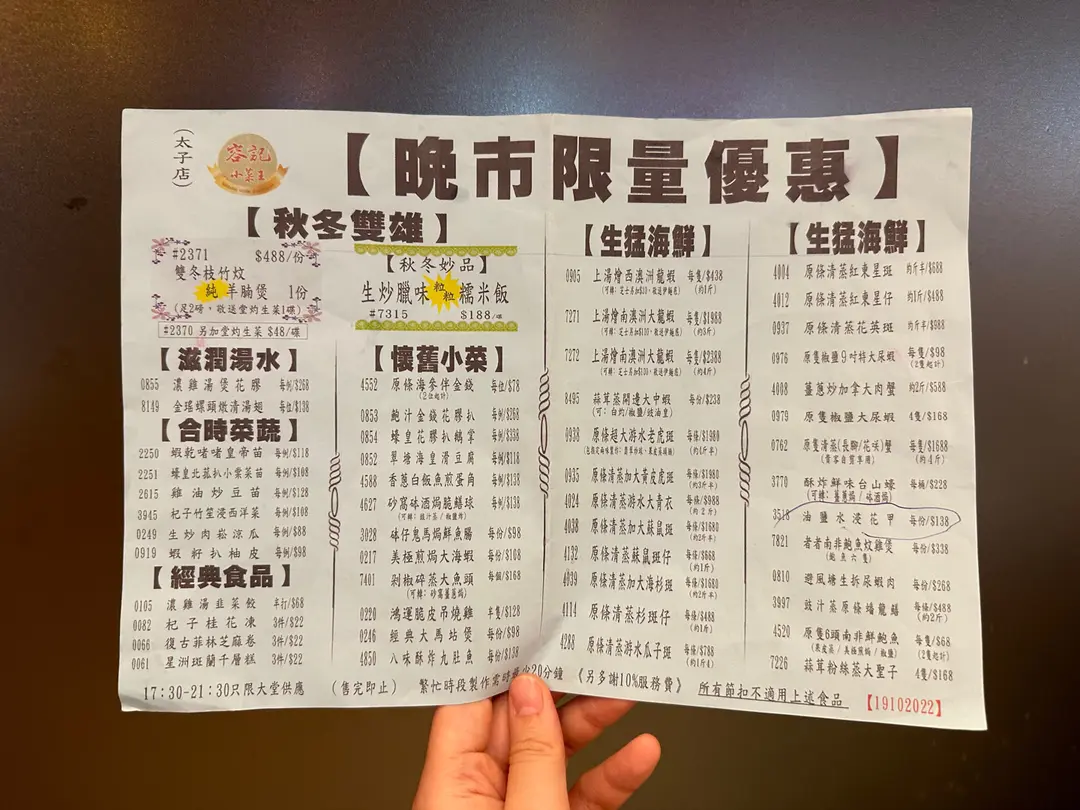 (太子店)
容記
小菜王
【晚市限量優惠】
【秋冬雙雄】
#2371 $488/份
雙冬枝竹炆
純羊腩煲 1份
(足2磅，敬送堂灼生菜1碟)
#2370 另加堂灼生菜 $48/碟
【秋冬妙品】
生炒臘味粒粒糯米飯
#7315 $188/碟
【滋潤湯水】
0855 濃雞湯煲花膠 每例/$268
8149 金瑤螺頭燉清湯翅 每位/$138
【合時菜蔬】
2250 蝦乾啫啫皇帝苗 每例/$118
2251 蠔皇北菇扒小棠菜苗 每例/$108
2615 雞油炒豆苗 每例/$128
3945 杞子竹笙浸西洋菜 每例/$108
0249 生炒肉崧涼瓜 每例/$88
0919 蝦籽扒柚皮 每例/$98
【經典食品】
0105 濃雞湯韮菜餃 半打/$68
0082 杞子桂花凍 3件/$22
0066 復古菲林芝麻卷 3件/$22
0061 星洲斑蘭千層糕 3件/$22
【懷舊小菜】
4552 原條海參伴金錢 每位/$78
(2位起計)
0853 鮑汁金錢花膠扒 每例/$268
0854 蠔皇花膠扒鵝掌 每例/$338
0852 翠塘海皇滑豆腐 每例/$118
4588 香蔥白飯魚煎蛋角 每例/$138
4627 砂窩砵酒焗脆鱔球 每例/$138
(可轉：豉汁蒸 / 椒鹽炸)
3028 砵仔鬼馬焗鮮魚腸 每份/$98
0217 美極煎焗大海蝦 每份/$108
7401 剁椒碎蒸大魚頭 每個/$168
(可轉：砂窩薑蔥焗)
0220 鴻運脆皮吊燒雞 半隻/$128
0246 經典大馬站煲 每份/$98
4850 八味酥炸九肚魚 每份/$138
【生猛海鮮】
0905 上湯燴西澳洲龍蝦 每隻/$438
(可轉：芝士另加$30，敬送伊麵底) (約1斤)
7271 上湯燴南澳洲大龍蝦 每隻/$1988
(可轉：芝士另加$100，敬送伊麵底) (約3斤)
7272 上湯燴南澳洲大龍蝦 每隻/$2388
(可轉：芝士另加$100，敬送伊麵底) (約4斤)
8495 蒜茸蒸開邊大中蝦 每份/$238
(可：白灼/椒鹽/豉油皇)
0938 原條超大游水老虎斑 每條/$1980
0935 原條清蒸加大黃皮虎斑 每條/$1980
(約3斤半)
4024 原條清蒸游水大青衣 每條/$988
(約2斤)
4038 原條清蒸加大蘇鼠斑 每條/$1680
(約2斤半)
4132 原條清蒸蘇鼠斑仔 每條/$668
(約1斤)
4039 原條清蒸加大海杉斑 每條/$1680
(約2斤半)
4114 原條清蒸杉斑仔 每條/$488
(約1斤)
4288 原條清蒸游水瓜子斑 每條/$788
(約1斤4)
【生猛海鮮】
4004 原條清蒸紅東星斑 約斤半/$688
4012 原條清蒸紅東星仔 約1斤/$488
0937 原條清蒸花英斑 約斤半/$988
0976 原隻椒鹽9吋特大尿蝦 每隻/$98
(2隻起計)
4008 薑蔥炒加拿大肉蟹 約2斤/$588
0979 原隻椒鹽大尿蝦 4隻/$168
0762 原隻清蒸(長腳/花咲)蟹 每隻/$1688
(約4斤)
3770 酥炸鮮味台山蠔 每桶/$228
(可轉：薑蔥焗 / 砵酒焗)
3518 油鹽水浸花甲 每份/$138
7821 者者南非鮑魚炆雞煲 每份/$338
(鮑魚六隻)
0810 避風塘生拆尿蝦肉 每份/$268
3997 豉汁蒸原條蟠龍鱔 每條/$488
(約2斤)
4520 原隻6頭南非鮮鮑魚 每隻/$68
(果皮蒸 / 美極煎焗 / 椒鹽) (2隻起計)
7226 蒜茸粉絲蒸大聖子 4隻/$168
17:30-21:30只限大堂供應 (售完即止) 繁忙時段製作需時最少20分鐘 《另多謝10%服務費》 所有節扣不適用上述食品 【19102022】